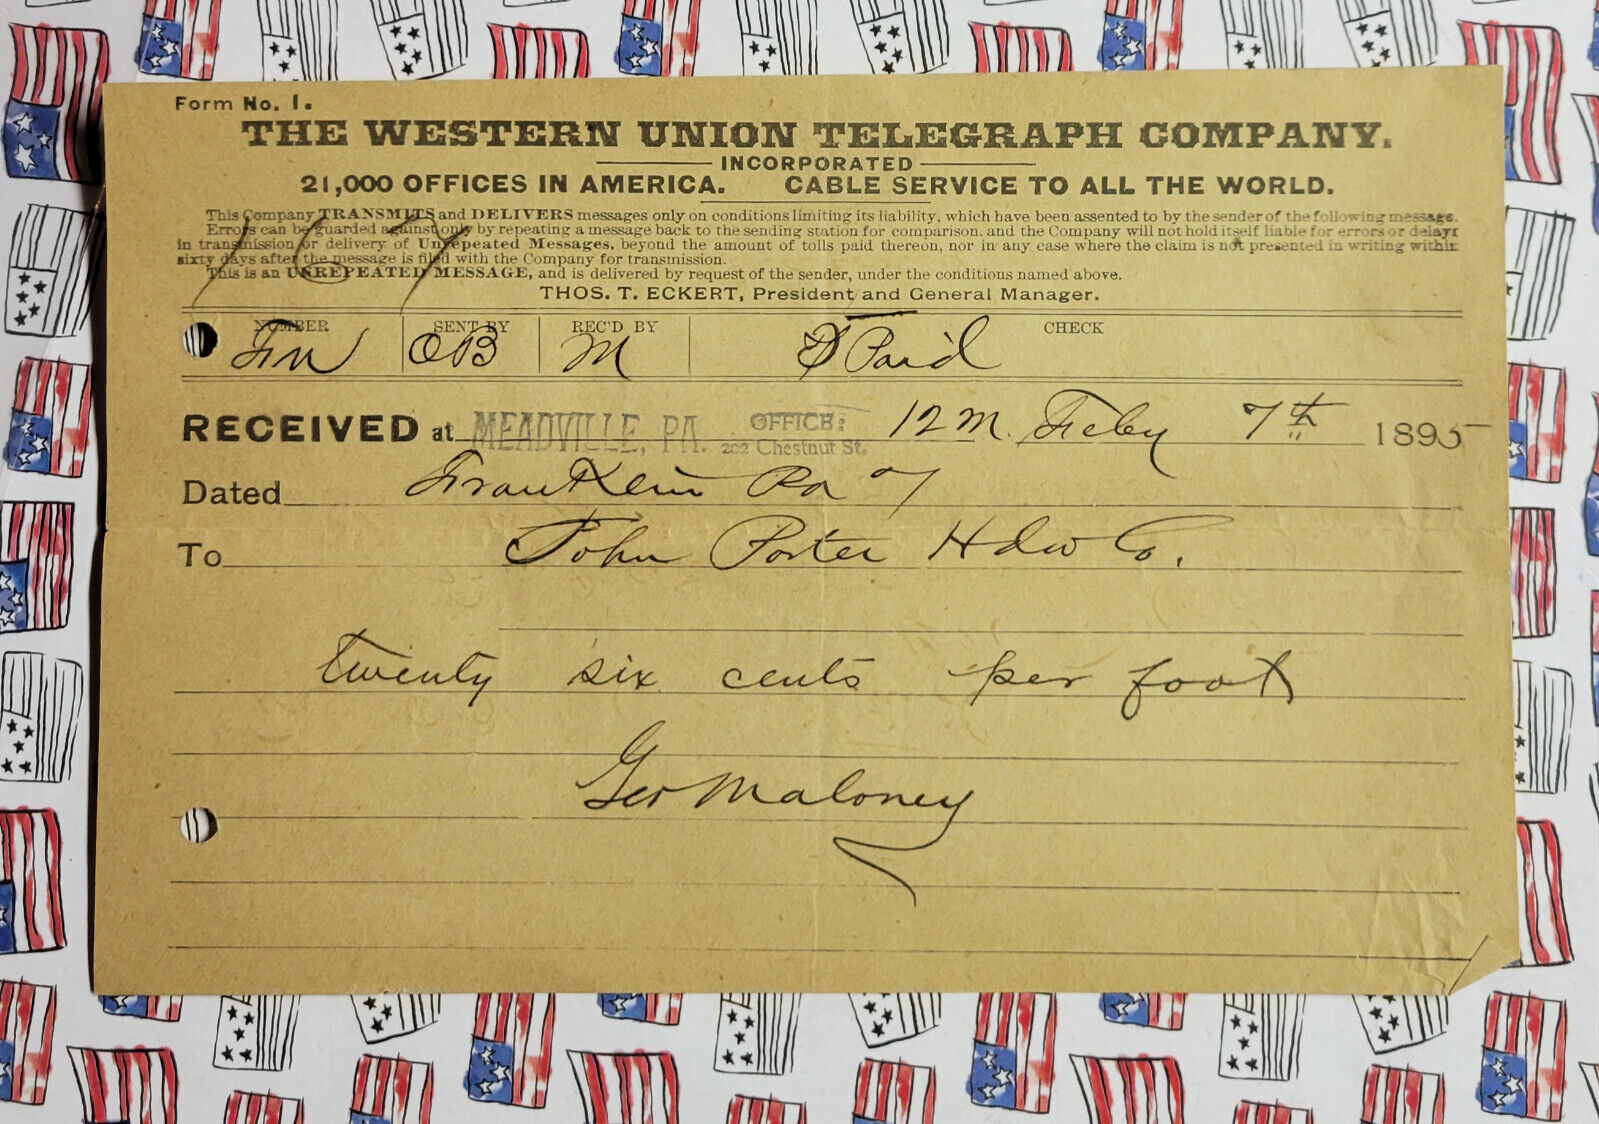 Form No. 1.
THE WESTERN UNION TELEGRAPH COMPANY.
INCORPORATED
21,000 OFFICES IN AMERICA. CABLE SERVICE TO ALL THE WORLD.
This Company TRANSMITS and DELIVERS messages only on conditions limiting its liability, which have been assented to by the sender of the following message.
Errors can be guarded against only by repeating a message back to the sending station for comparison, and the Company will not hold itself liable for errors or delays
in transmission or delivery of Unrepeated Messages, beyond the amount of tolls paid thereon, nor in any case where the claim is not presented in writing within
sixty days after the message is filed with the Company for transmission.
This is an UNREPEATED MESSAGE, and is delivered by request of the sender, under the conditions named above.
THOS. T. ECKERT, President and General Manager.
167
NUMBER SENT BY REC'D BY CHECK
OB M Paid
RECEIVED at MEADVILLE, PA. OFFICE: 202 Chestnut St. 12 M. Feby 7th 1895
Dated Franklin Pa 7
To John Porter Hdw Co.
twenty six cents per foot
Geo Maloney